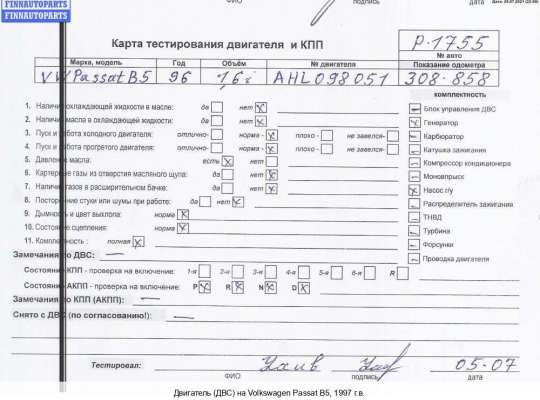 FINNAUTOPARTS
FINNAUTOPARTS
ФИО подпись дата
Карта тестирования двигателя и КПП
P-1755
№ авто
Марка, модель Год Объём № двигателя Показание одометра
VW Passat B5 96 1,6i AHL098051 308-858
комплектность
1. Наличие охлаждающей жидкости в масле: да нет
Блок управления ДВС
2. Наличие масла в охлаждающей жидкости: да нет
Генератор
3. Пуск и работа холодного двигателя: отлично- норма - плохо - не завелся-
Карбюратор
4. Пуск и работа прогретого двигателя: отлично- норма - плохо - не завелся-
Катушка зажигания
5. Давление масла: есть нет
Компрессор кондиционера
6. Картерные газы из отверстия масляного щупа: да нет
Моновпрыск
7. Наличие газов в расширительном бачке: да нет
Насос г/у
8. Посторонние стуки или шумы при работе: да нет
Распределитель зажигания
9. Дымность и цвет выхлопа: норма
ТНВД
10. Состояние сцепления: норма
Турбина
11. Комплектность : полная
Форсунки
Замечания по ДВС:
Проводка двигателя
Состояние КПП - проверка на включение: 1-я 2-я 3-я 4-я 5-я 6-я R
Состояние АКПП - проверка на включение: P R N D
Замечания по КПП (АКПП):
Снято с ДВС (по согласованию!):
Тестировал: 05-07
ФИО подпись дата
Двигатель (ДВС) на Volkswagen Passat B5, 1997 г.в.